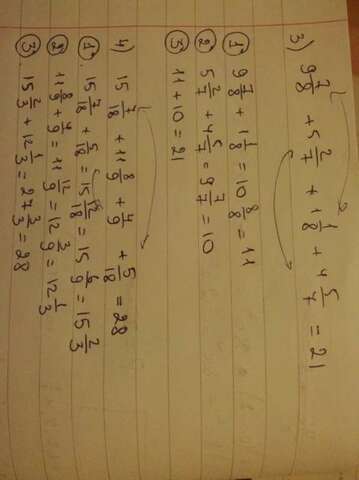 3) 9 7/8 + 5 2/7 + 1 1/8 + 4 5/7 = 21
① 9 7/8 + 1 1/8 = 10 8/8 = 11
② 5 2/7 + 4 5/7 = 9 7/7 = 10
③ 11 + 10 = 21
4) 15 7/18 + 11 8/9 + 4/9 + 5/18 = 28
① 15 7/18 + 5/18 = 15 12/18 = 15 6/9 = 15 2/3
② 11 8/9 + 4/9 = 11 12/9 = 12 3/9 = 12 1/3
③ 15 2/3 + 12 1/3 = 27 3/3 = 28